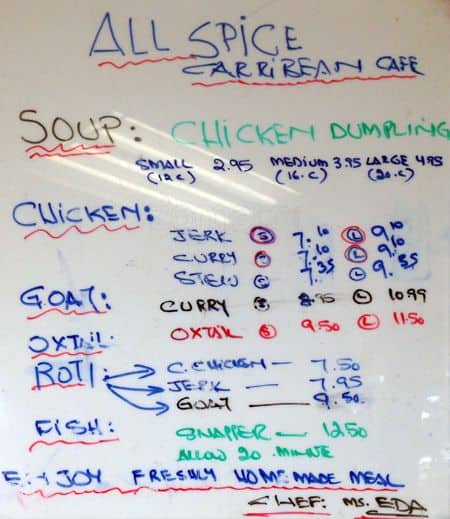 ALL SPICE
CARRIBEAN CAFE
SOUP: CHICKEN DUMPLING
SMALL 2.95 MEDIUM 3.95 LARGE 4.95
(12.C) (16.C) (20.C)
CHICKEN:
JERK S 7.10 L 9.10
CURRY S 7.10 L 9.10
STEW S 7.35 L 9.35
GOAT: CURRY S 8.95 L 10.99
OXTAIL: OXTAIL S 9.50 L 11.50
ROTI: C.CHICKEN — 7.50
JERK — 7.95
GOAT — 9.50
FISH: SNAPPER — 12.50
ALLOW 20 MINUTE
ENJOY FRESHLY HOME MADE MEAL
CHEF: MS. EDA